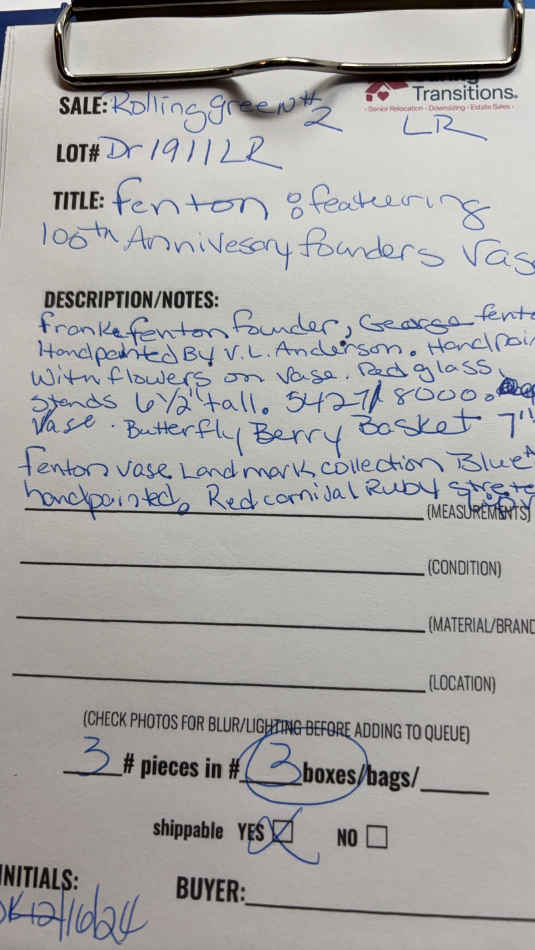 Caring
Transitions®
Senior Relocation • Downsizing • Estate Sales
SALE: Rolling green #2 LR
LOT# Dr1911LR
TITLE: fenton : featuering
100th Annivesary founders Vas
DESCRIPTION/NOTES:
Frank fenton founder, George fent
Handpainted By V.L. Anderson. Handpai
With flowers on vase. Red glass.
Stands 6 1/2" tall. 5427/8000.
Vase. Butterfly Berry Basket 7"
fenton vase Landmark collection Blue
handpainted. Red carnival Ruby
(MEASUREMENTS)
(CONDITION)
(MATERIAL/BRAND
(LOCATION)
(CHECK PHOTOS FOR BLUR/LIGHTING BEFORE ADDING TO QUEUE)
3 # pieces in # 3 boxes/bags/
shippable YES NO
INITIALS:
BUYER:
12/16/24